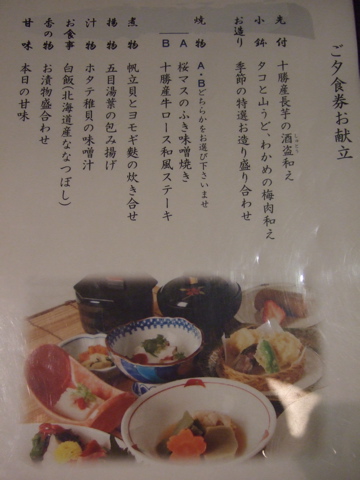 ご夕食券お献立
先付 十勝産長芋の酒盗和え
しゅとう
小鉢 タコと山うど、わかめの梅肉和え
お造り 季節の特選お造り盛り合わせ
焼物 A・Bどちらかをお選び下さいませ
A 桜マスのふき味噌焼き
B 十勝産牛ロース和風ステーキ
煮物 帆立貝とヨモギ麩の炊き合せ
揚物 五目湯葉の包み揚げ
汁物 ホタテ稚貝の味噌汁
お食事 白飯(北海道産ななつぼし)
香の物 お漬物盛合わせ
甘味 本日の甘味